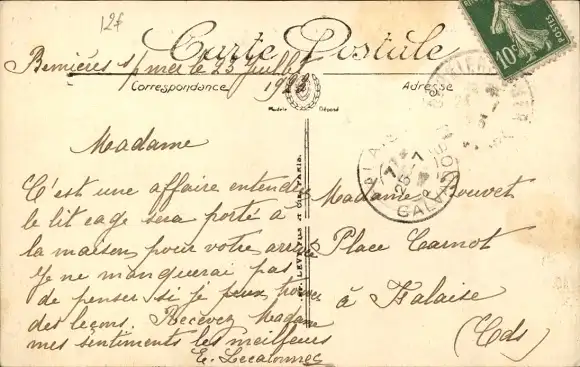 12f
Carte Postale
Bernières s/mer le 23 juillet
Correspondance
Adresse
Modèle Déposé
10c
POSTES
FALAISE
CALVADOS
25-7
Madame
C'est une affaire entendue
le lit cage sera porté à
la maison pour votre arrivée
Je ne manquerai pas
de penser si je peux trouver
des leçons. Recevez Madame
mes sentiments les meilleurs
E. Lecalonnec
Madame Jouvet
Place Carnot
à Falaise
(Cds)